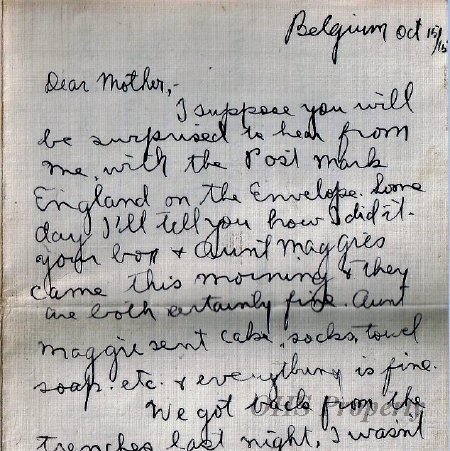 Belgium Oct 15/15
Dear Mother,-
I suppose you will
be surprised to hear from
me, with the Post mark
England on the Envelope. Some
day I'll tell you how I did it.
Your box & Aunt Maggies
came this morning & they
are both certainly fine. Aunt
Maggie sent cake, socks, towel
soap. etc. & everything is fine.
We got back from the
trenches last night, I wasn't
Property